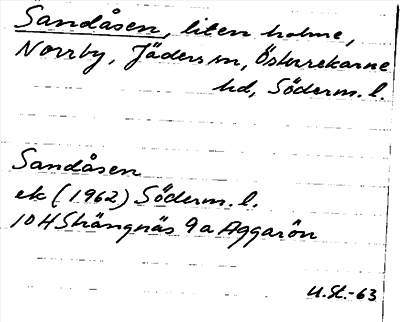 Sandåsen, liten holme,
Norrby, Jäders sn, Österrekarne
hd, Söderm. l.
Sandåsen
ek (1962) Söderm. l.
10H Strängnäs 9a Aggarön
U.St.-63